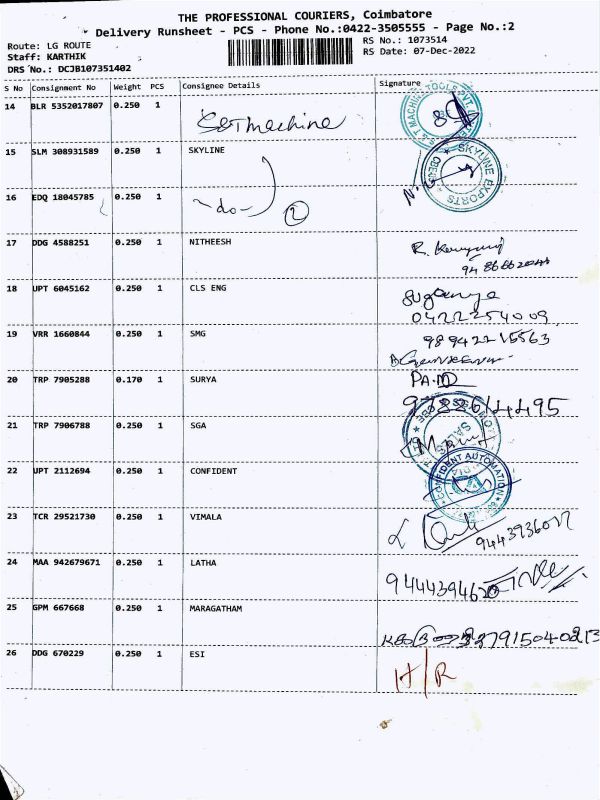 THE PROFESSIONAL COURIERS, Coimbatore
Delivery Runsheet - PCS - Phone No.:0422-3505555 - Page No.:2
Route: LG ROUTE
Staff: KARTHIK
DRS No.: DCJB107351402
RS No.: 1073514
RS Date: 07-Dec-2022
S No Consignment No Weight PCS Consignee Details Signature
14 BLR 5352017807 0.250 1 S&T Machine
15 SLM 308931589 0.250 1 SKYLINE SKYLINE EXPORTS
16 EDQ 18045785 0.250 1 -do- 2
17 DDG 4588251 0.250 1 NITHEESH
18 UPT 6045162 0.250 1 CLS ENG Suganya
04222254009
19 VRR 1660844 0.250 1 SMG 98942215563
20 TRP 7905288 0.170 1 SURYA
21 TRP 7906788 0.250 1 SGA SALES
22 UPT 2112694 0.250 1 CONFIDENT CONFIDENT AUTOMATION
23 TCR 29521730 0.250 1 VIMALA
24 MAA 942679671 0.250 1 LATHA 9444394620
25 GPM 667668 0.250 1 MARAGATHAM
26 DDG 670229 0.250 1 ESI H/R